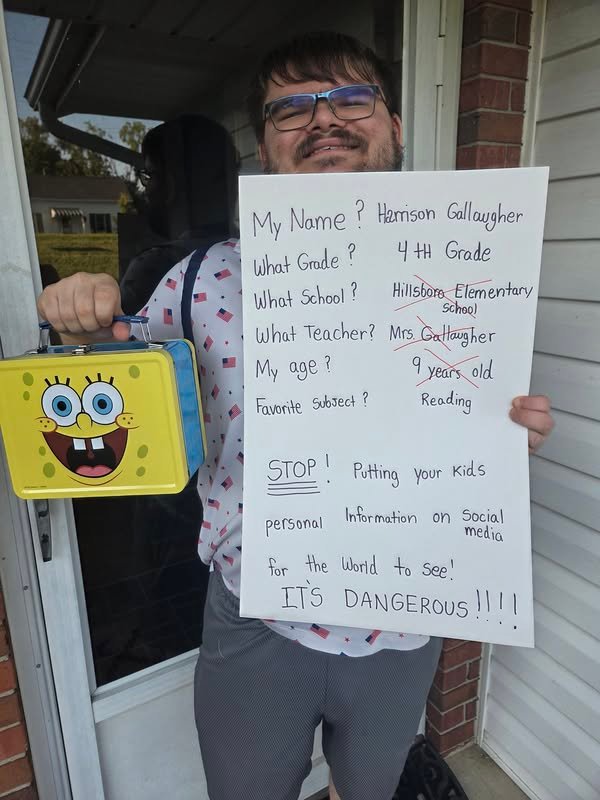 My Name? Harrison Gallaugher
What Grade? 4TH Grade
What School? Hillsboro Elementary
school
What Teacher? Mrs. Gallaugher
My age? 9 years old
Favorite Subject? Reading
STOP! Putting your kids
personal Information on social
media
for the World to see!
IT'S DANGEROUS!!!!